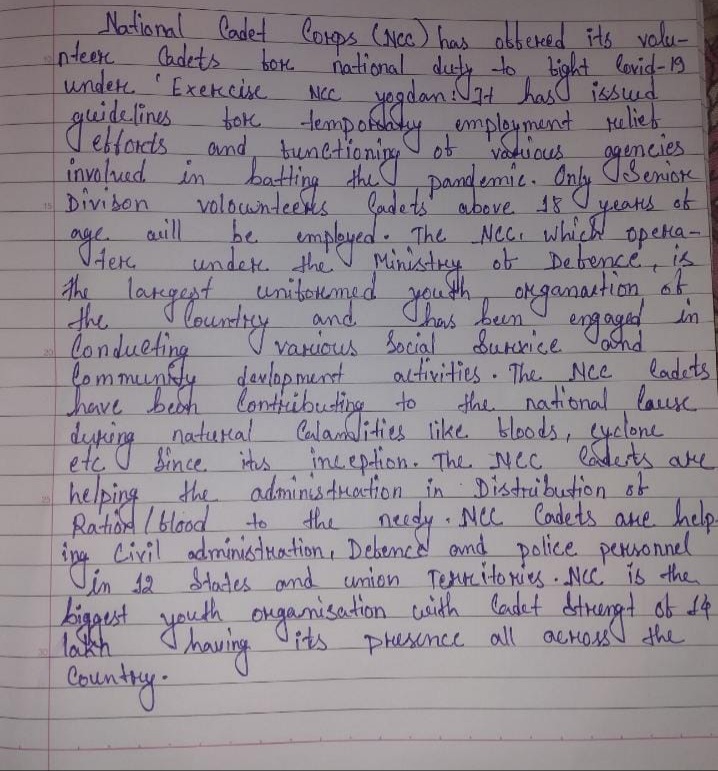 National Cadet Corps (NCC) has offered its volu-
nteer Cadets for national duty to fight Covid-19
under 'Exercise NCC yogdan'. It has issued
guidelines for temporary employment relief
efforts and functioning of various agencies
involved in batting the pandemic. Only Senior
Divison volounteers Cadets above 18 years of
age will be employed. The NCC, which opera-
ter under the Ministry of Defence, is
the largest uniformed youth organation of
the Country and has been engaged in
Conducting various Social Survice and
Community devlopment activities. The NCC Cadets
have been Contributing to the national Cause
during natural Calamities like floods, cyclone
etc Since its inception. The NCC Caderts are
helping the administration in Distribution of
Ration/blood to the needy. NCC Cadets are help-
ing Civil administration, Defence and police personnel
in 12 States and union Territories. NCC is the
biggest youth organisation with Cadet Strengt of 14
lakh having its presence all across the
Country.